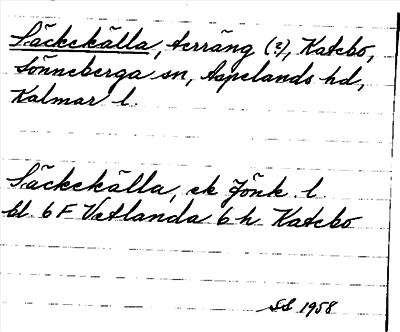 Säckekälla, terräng (?), Katebo,
Lönneberga sn, Aspelands hd,
Kalmar l.
Säckekälla, ek Jönk l
bl 6 F Vetlanda 6 h Katebo
SS 1958